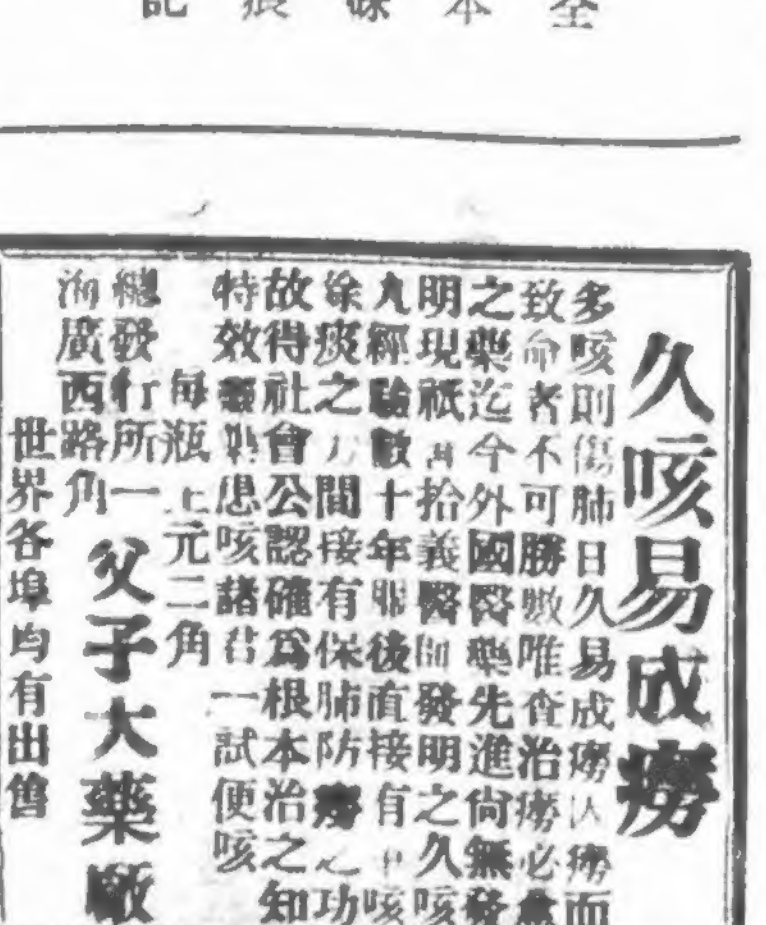 全本淚痕記
久咳易成癆
多咳則傷肺日久易成癆因癆而
致命者不可勝數唯查治癆必
之藥迄今外國醫藥先進尙無發
明現祇拾義醫師發明之久咳
丸經驗數十年服後直接有咳
除痰之間接有保肺防癆之功
故得社會公認確爲根本治之知
特效患咳諸君一試便咳
每瓶上元二角
總發行所一父子大藥廠
海廣西路角
世界各埠均有出售